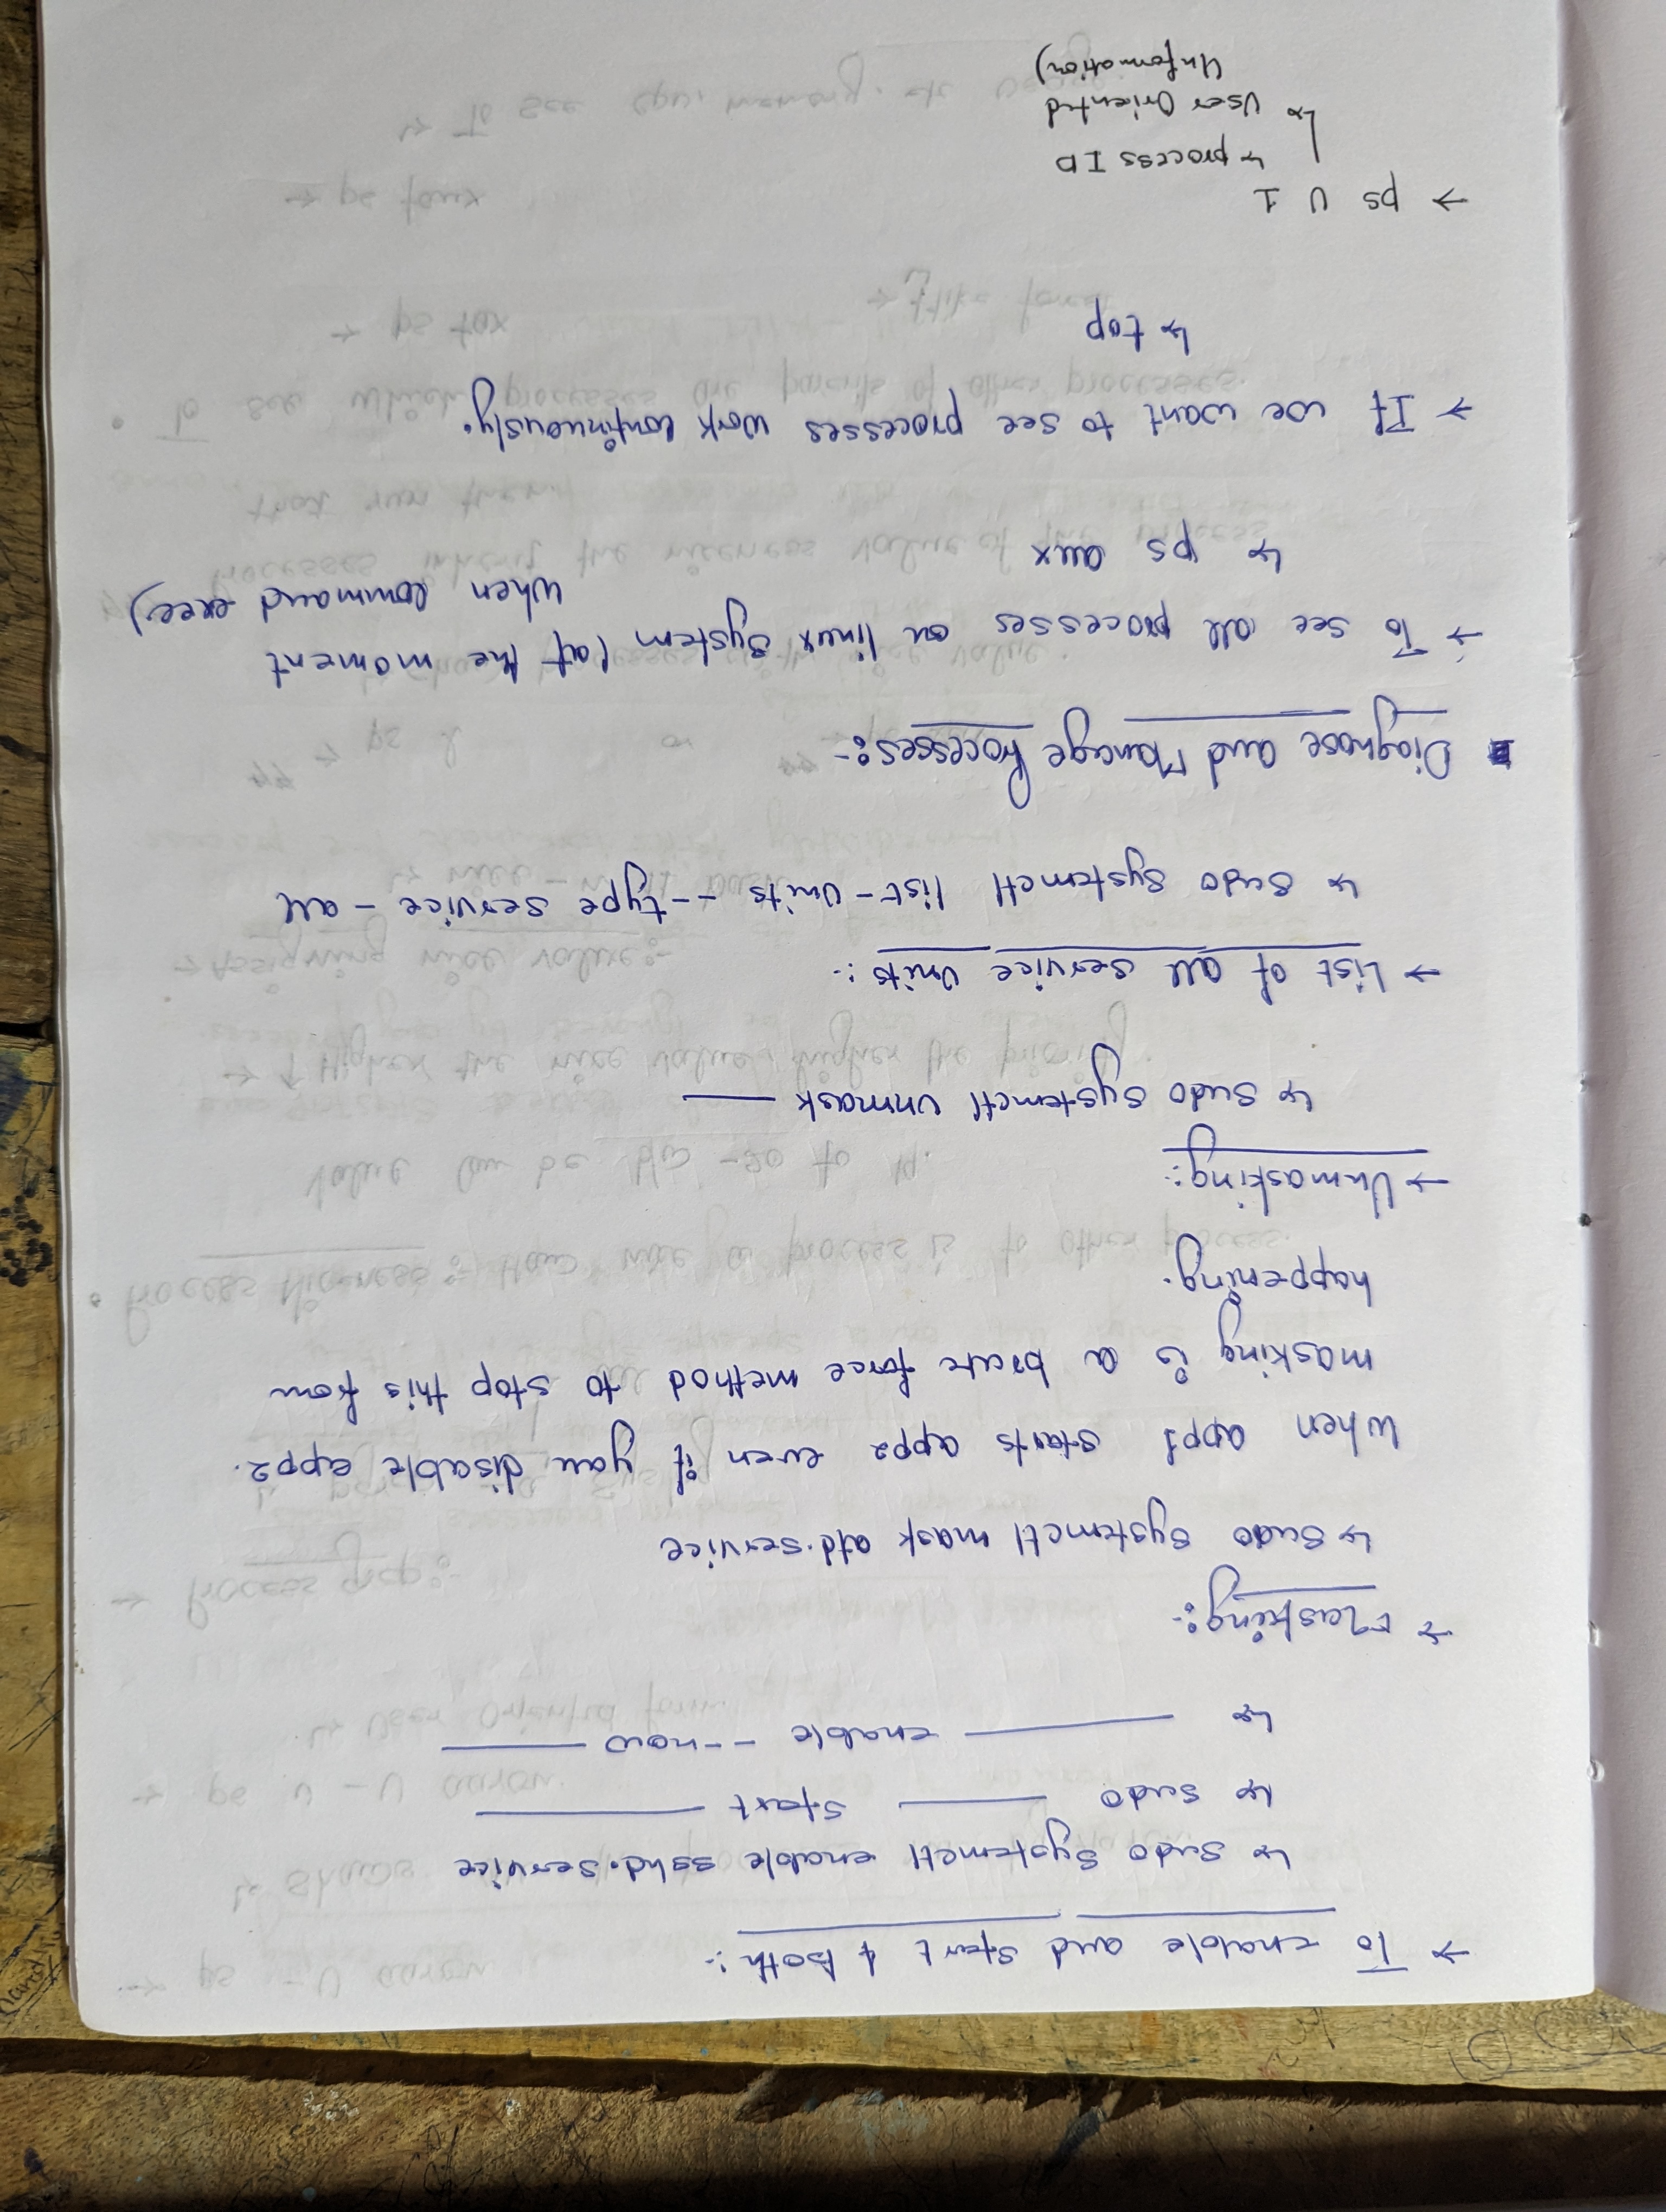 → To enable and start & both:-
↳ sudo systemctl enable sshd.service
↳ sudo —— start ——
↳ —— enable --now ——
→ Masking:-
↳ sudo systemctl mask atd.service
When app1 starts app2 even if you disable app2.
masking is a brute force method to stop this from
happening.
→ Unmasking:-
↳ sudo systemctl unmask ——
→ List of all service units:-
↳ sudo systemctl list-units --type service -all
Diagnose and Manage Processes:-
→ To see all processes on linux system (at the moment
when command exec)
↳ ps aux
→ If we want to see processes work continuously.
↳ top
→ ps U 1
↳ process ID
↳ User Oriented
Information)